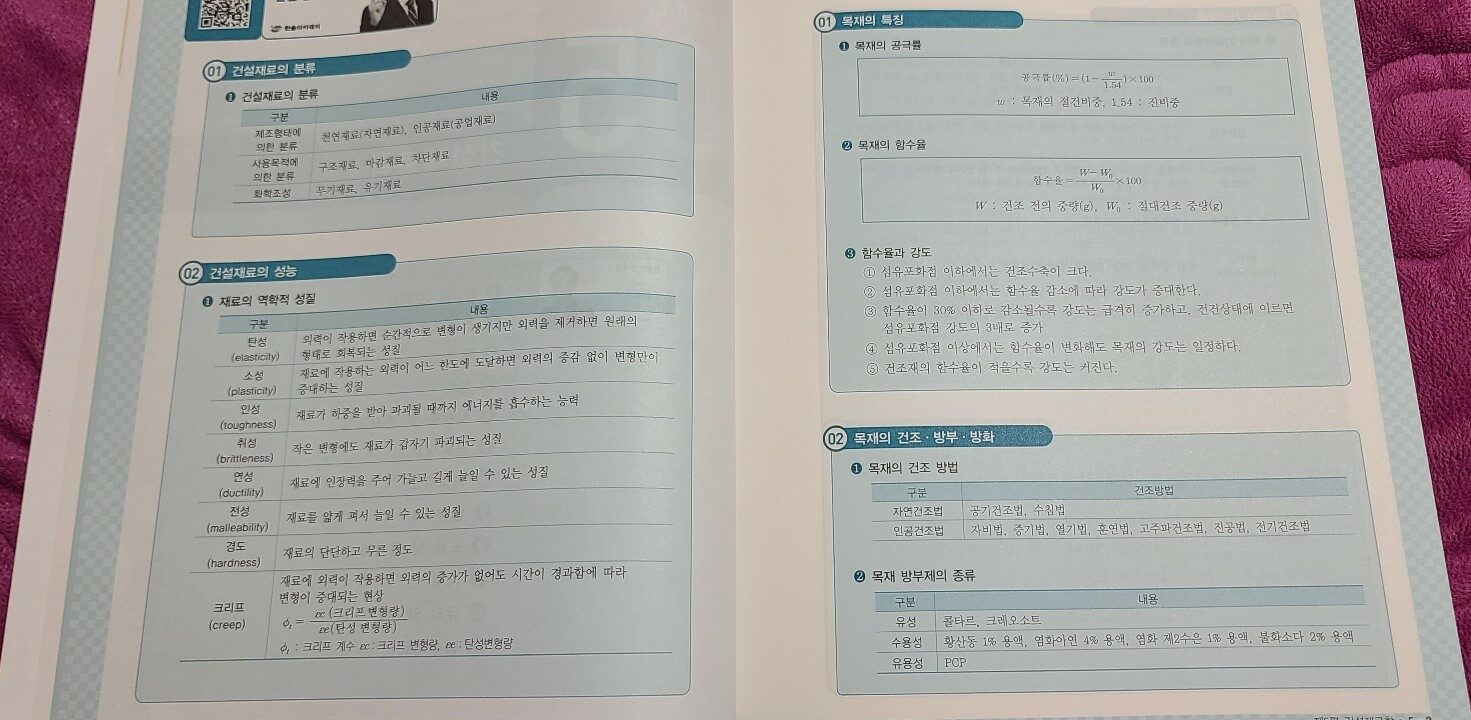 한솔아카데미
01 건설재료의 분류
❶ 건설재료의 분류
구분 내용
제조형태에 의한 분류 천연재료(자연재료), 인공재료(공업재료)
사용목적에 의한 분류 구조재료, 마감재료, 차단재료
화학조성 무기재료, 유기재료
02 건설재료의 성능
❶ 재료의 역학적 성질
구분 내용
탄성 (elasticity) 외력이 작용하면 순간적으로 변형이 생기지만 외력을 제거하면 원래의
형태로 회복되는 성질
소성 (plasticity) 재료에 작용하는 외력이 어느 한도에 도달하면 외력의 증감 없이 변형만이
증대하는 성질
인성 (toughness) 재료가 하중을 받아 파괴될 때까지 에너지를 흡수하는 능력
취성 (brittleness) 작은 변형에도 재료가 갑자기 파괴되는 성질
연성 (ductility) 재료에 인장력을 주어 가늘고 길게 늘일 수 있는 성질
전성 (malleability) 재료를 얇게 펴서 늘일 수 있는 성질
경도 (hardness) 재료의 단단하고 무른 정도
크리프 (creep) 재료에 외력이 작용하면 외력의 증가가 없어도 시간이 경과함에 따라
변형이 증대되는 현상
ϕt = εc (크리프 변형량) / εe (탄성 변형량)
ϕt : 크리프 계수 εc : 크리프 변형량, εe : 탄성변형량
01 목재의 특징
❶ 목재의 공극률
공극률(%) = (1 - w/1.54) × 100
w : 목재의 절건비중, 1.54 : 진비중
❷ 목재의 함수율
함수율 = (W - W₀)/W₀ × 100
W : 건조 전의 중량(g), W₀ : 절대건조 중량(g)
❸ 함수율과 강도
① 섬유포화점 이하에서는 건조수축이 크다.
② 섬유포화점 이하에서는 함수율 감소에 따라 강도가 증대한다.
③ 함수율이 30% 이하로 감소될수록 강도는 급격히 증가하고, 전건상태에 이르면
섬유포화점 강도의 3배로 증가
④ 섬유포화점 이상에서는 함수율이 변화해도 목재의 강도는 일정하다.
⑤ 건조재의 함수율이 적을수록 강도는 커진다.
02 목재의 건조·방부·방화
❶ 목재의 건조 방법
구분 건조방법
자연건조법 공기건조법, 수침법
인공건조법 자비법, 증기법, 열기법, 훈연법, 고주파건조법, 진공법, 전기건조법
❷ 목재 방부제의 종류
구분 내용
유성 콜타르, 크레오소트
수용성 황산동 1% 용액, 염화아연 4% 용액, 염화 제2수은 1% 용액, 불화소다 2% 용액
유용성 PCP